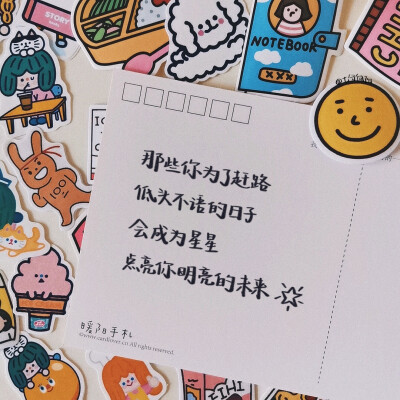 STORY
NOTEBOOK
那些你为了赶路
低头不语的日子
会成为星星
点亮你明亮的未来
暖阳手札